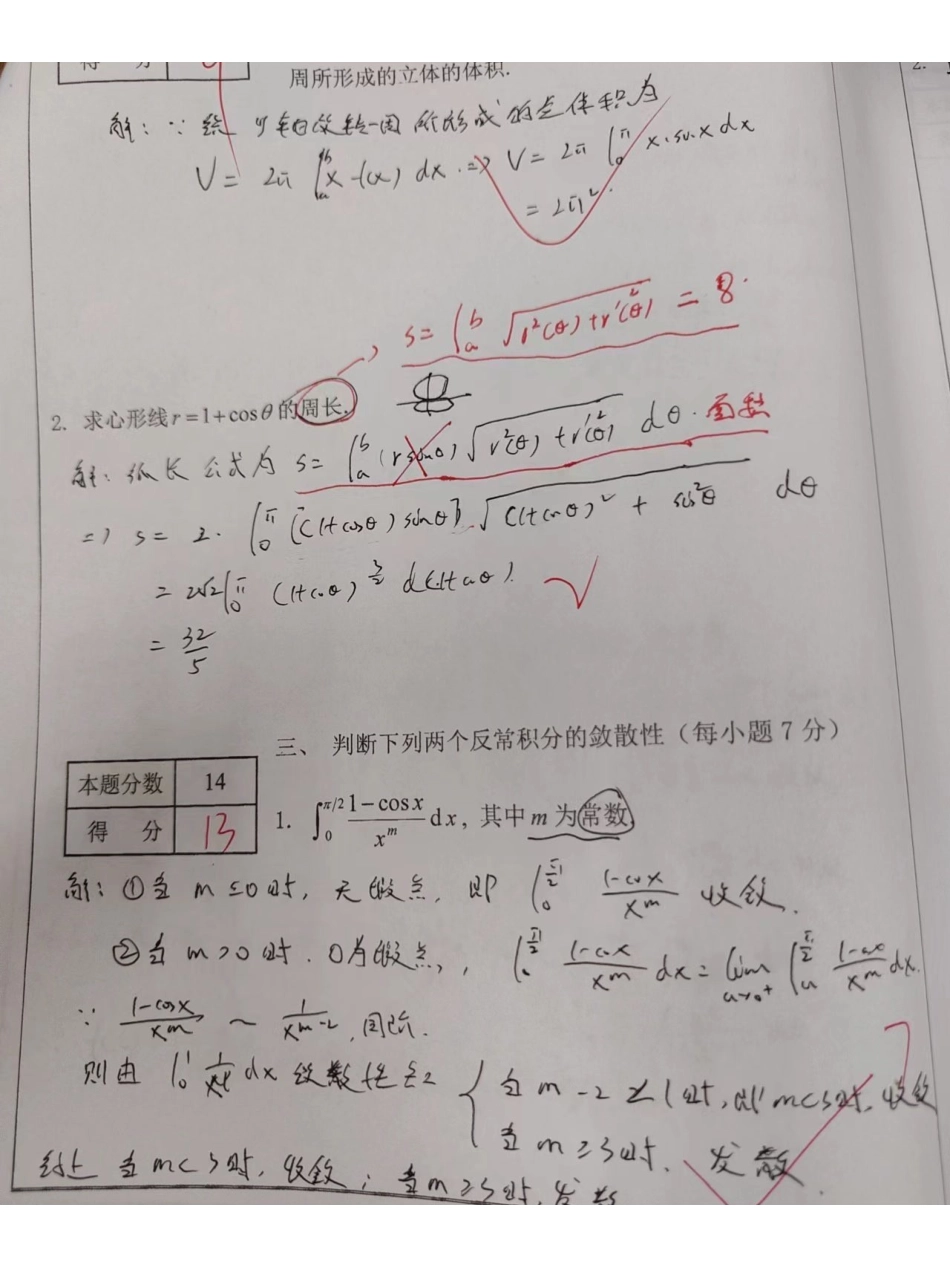 得 分
周所形成的立体的体积.
解：∵ 绕 y 轴旋转一周所形成的立体体积为
V = 2π ∫_a^b x f(x) dx ⇒ V = 2π ∫_0^π x·sinx dx
= 2π².
s = ∫_a^b √(r²(θ)+r'²(θ)) = 8.
2. 求心形线 r = 1 + cosθ 的周长.
解：弧长公式为 s = ∫_a^b (rsinθ) √(r²(θ)+r'²(θ)) dθ. 面积
⇒ s = 2·∫_0^π [(1+cosθ) sinθ]·√((1+cosθ)² + sin²θ) dθ
= 2√2 ∫_0^π (1+cosθ)^{3/2} d(1+cosθ).
= 32/5
三、 判断下列两个反常积分的敛散性（每小题 7 分）
本题分数 14
得 分 13
1. ∫_0^{π/2} (1−cos x)/x^m dx, 其中 m 为常数
解：①当 m ≤ 0 时, 无瑕点, 即 ∫_0^{π/2} (1-cosx)/x^m 收敛.
②当 m > 0 时. 0为瑕点, ∫_0^{π/2} (1-cosx)/x^m dx = lim_{a→0⁺} ∫_a^{π/2} (1-cosx)/x^m dx.
∵ (1-cosx)/x^m ~ 1/x^{m-2}, 同阶.
则由 ∫_0^1 dx 敛散性 { 当 m-2 < 1 时, 即 m<3时, 收敛
当 m ≥ 3 时. 发散.
综上 当 m < 3 时, 收敛; 当 m ≥ 3 时, 发散
2.